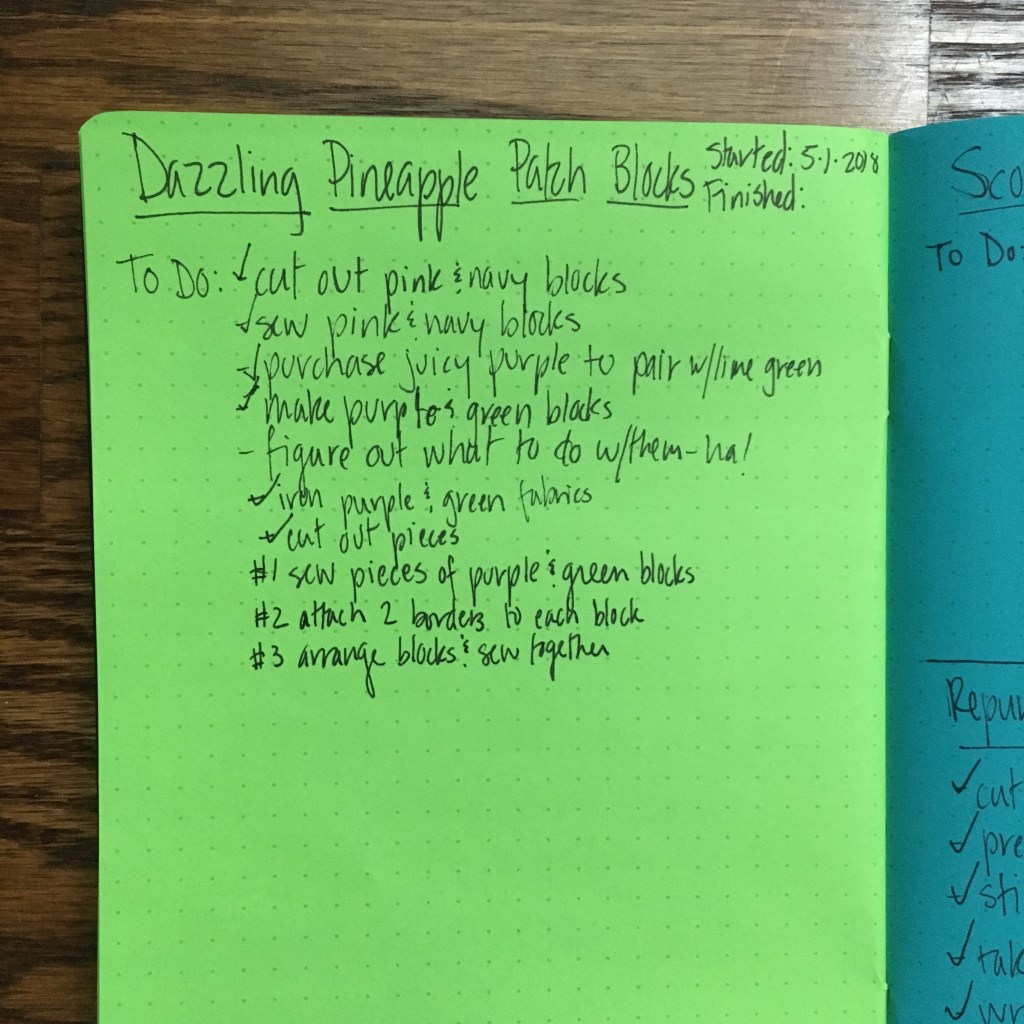 Dazzling Pineapple Patch Blocks
Started: 5.1.2018
Finished:
To Do: ✓cut out pink & navy blocks
✓sew pink & navy blocks
✓purchase juicy purple to pair w/lime green
✓make purple & green blocks
- figure out what to do w/them-ha!
✓iron purple & green fabrics
✓cut out pieces
#1 sew pieces of purple & green blocks
#2 attach 2 borders to each block
#3 arrange blocks & sew together
To Do:
✓cut